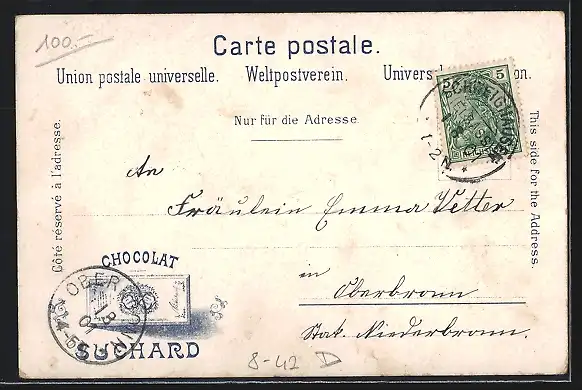 100.-
Carte postale.
Union postale universelle. Weltpostverein. Univers
Nur für die Adresse.
Côté réservé à l'adresse.
This side for the Address.
5
1-2N.
An
Fräulein Emma Vetter
in
Oberbronn
Stat. Niederbronn.
CHOCOLAT
SUCHARD
OBER
8-42 D